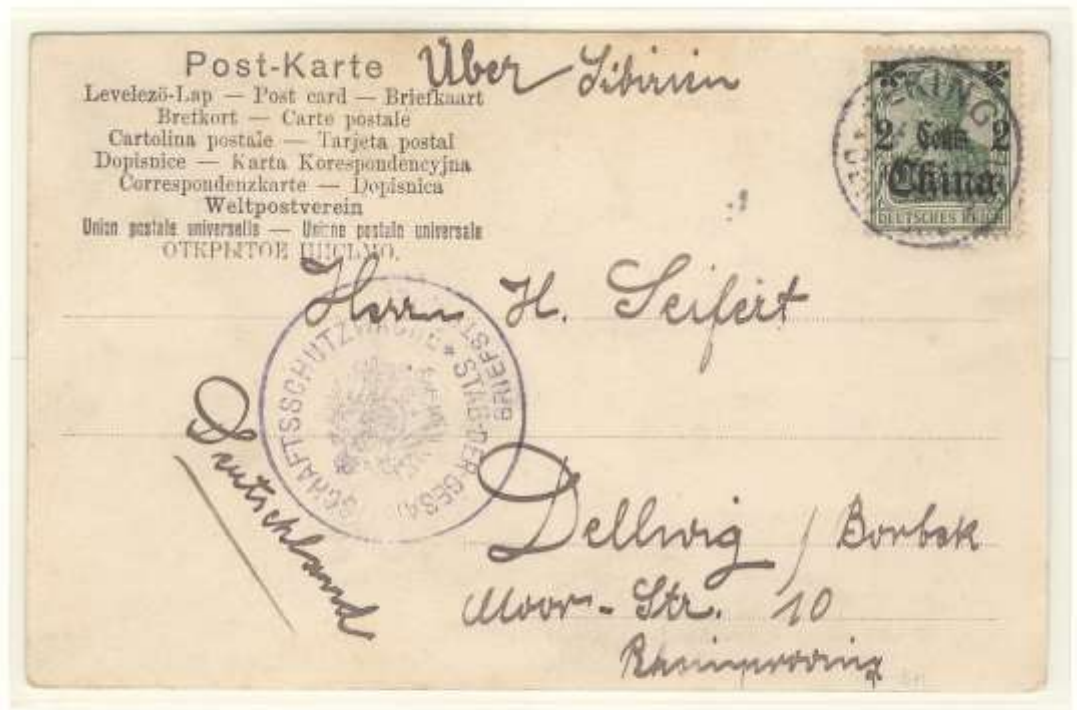 Post-Karte
Über Sibirien
Levelezö-Lap — Post card — Briefkaart
Brefkort — Carte postale
Cartolina postale — Tarjeta postal
Dopisnice — Karta Korespondencyjna
Correspondenzkarte — Dopisnica
Weltpostverein
Union postale universelle — Unione postale universale
ОТКРЫТОЕ ПИСЬМО.
PEKING
2 Cents 2
China
DEUTSCHES REICH
Herrn H. Seifert
STAB·DER·GES
SCHAFTSSCHUTZWACHE
BRIEFST
Deutschland
Dellwig / Borbek
Moor-Str. 10
Rheinprovinz